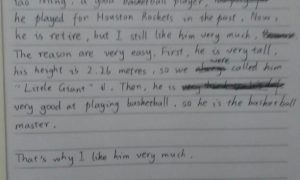 a good basketball player,
he played for Houston Rockets in the past. Now,
he is retire, but I still like him very much.
The reason are very easy. First, he is very tall,
his height is 2.26 metres, so we were called him
"Little Giant". Then, he is
very good at playing basketball. so he is the basketball
master.
That's why I like him very much.